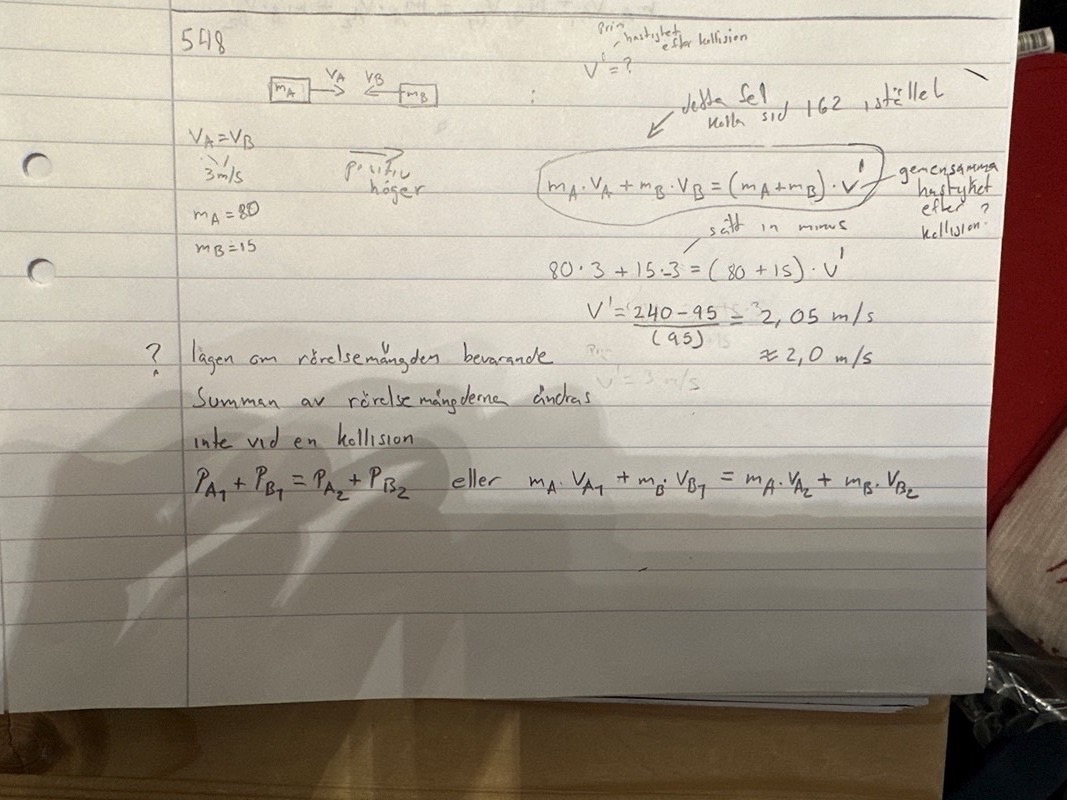 548
prim
hastighet
efter kollision
V' = ?
mA VA VB mB
detta fel
kolla sid 162 istället
VA = VB
3 m/s
positiv
höger
mA · VA + mB · VB = (mA + mB) · V'
gemensamma
hastighet
efter ?
kollision
mA = 80
mB = 15
sätt in minus
80 · 3 + 15 · -3 = (80 + 15) · V'
V' = 240 - 95 / (95) = 2,05 m/s
≈ 2,0 m/s
? lagen om rörelsemängden bevarande
V' = 3 m/s
Summan av rörelsemängderna ändras
inte vid en kollision
PA1 + PB1 = PA2 + PB2 eller mA · VA1 + mB · VB1 = mA · VA2 + mB · VB2